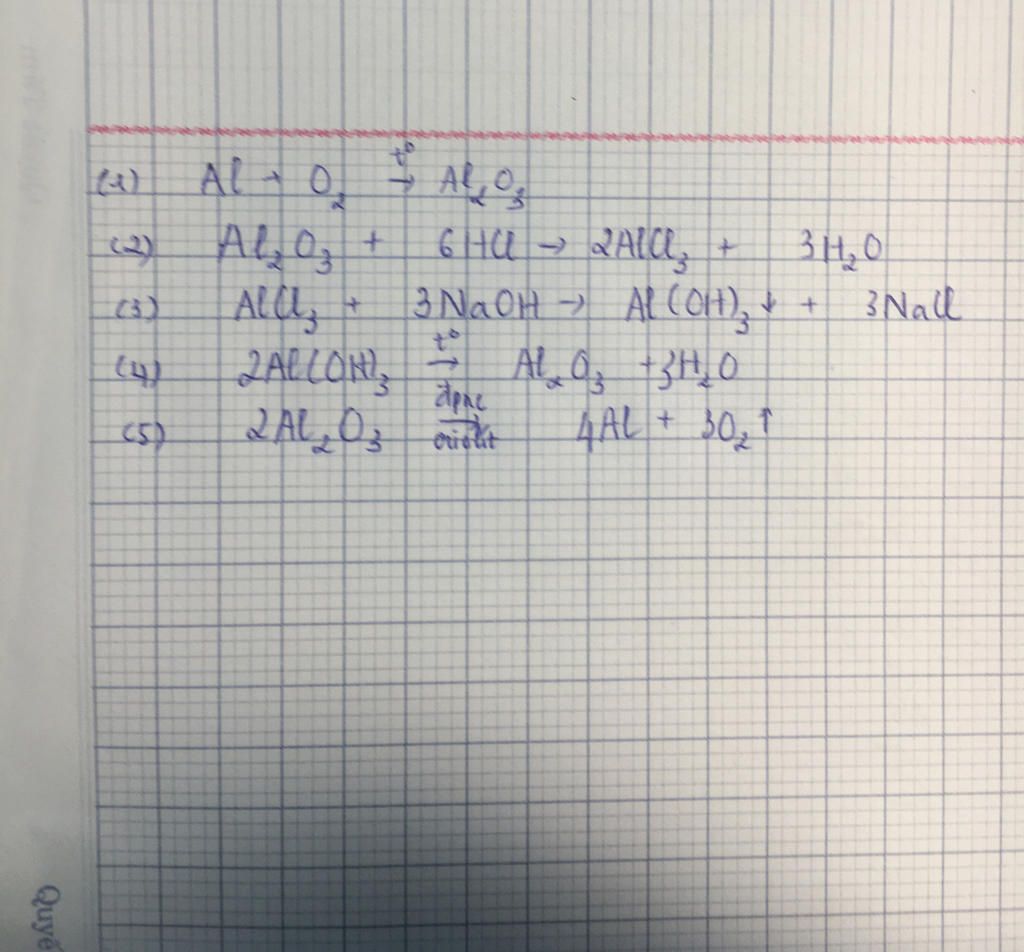 (1) Al + O₂ →t° Al₂O₃
(2) Al₂O₃ + 6HCl → 2AlCl₃ + 3H₂O
(3) AlCl₃ + 3NaOH → Al(OH)₃↓ + 3NaCl
(4) 2Al(OH)₃ →t° Al₂O₃ + 3H₂O
(5) 2Al₂O₃ →đpnc criolit 4Al + 3O₂↑
Quyể